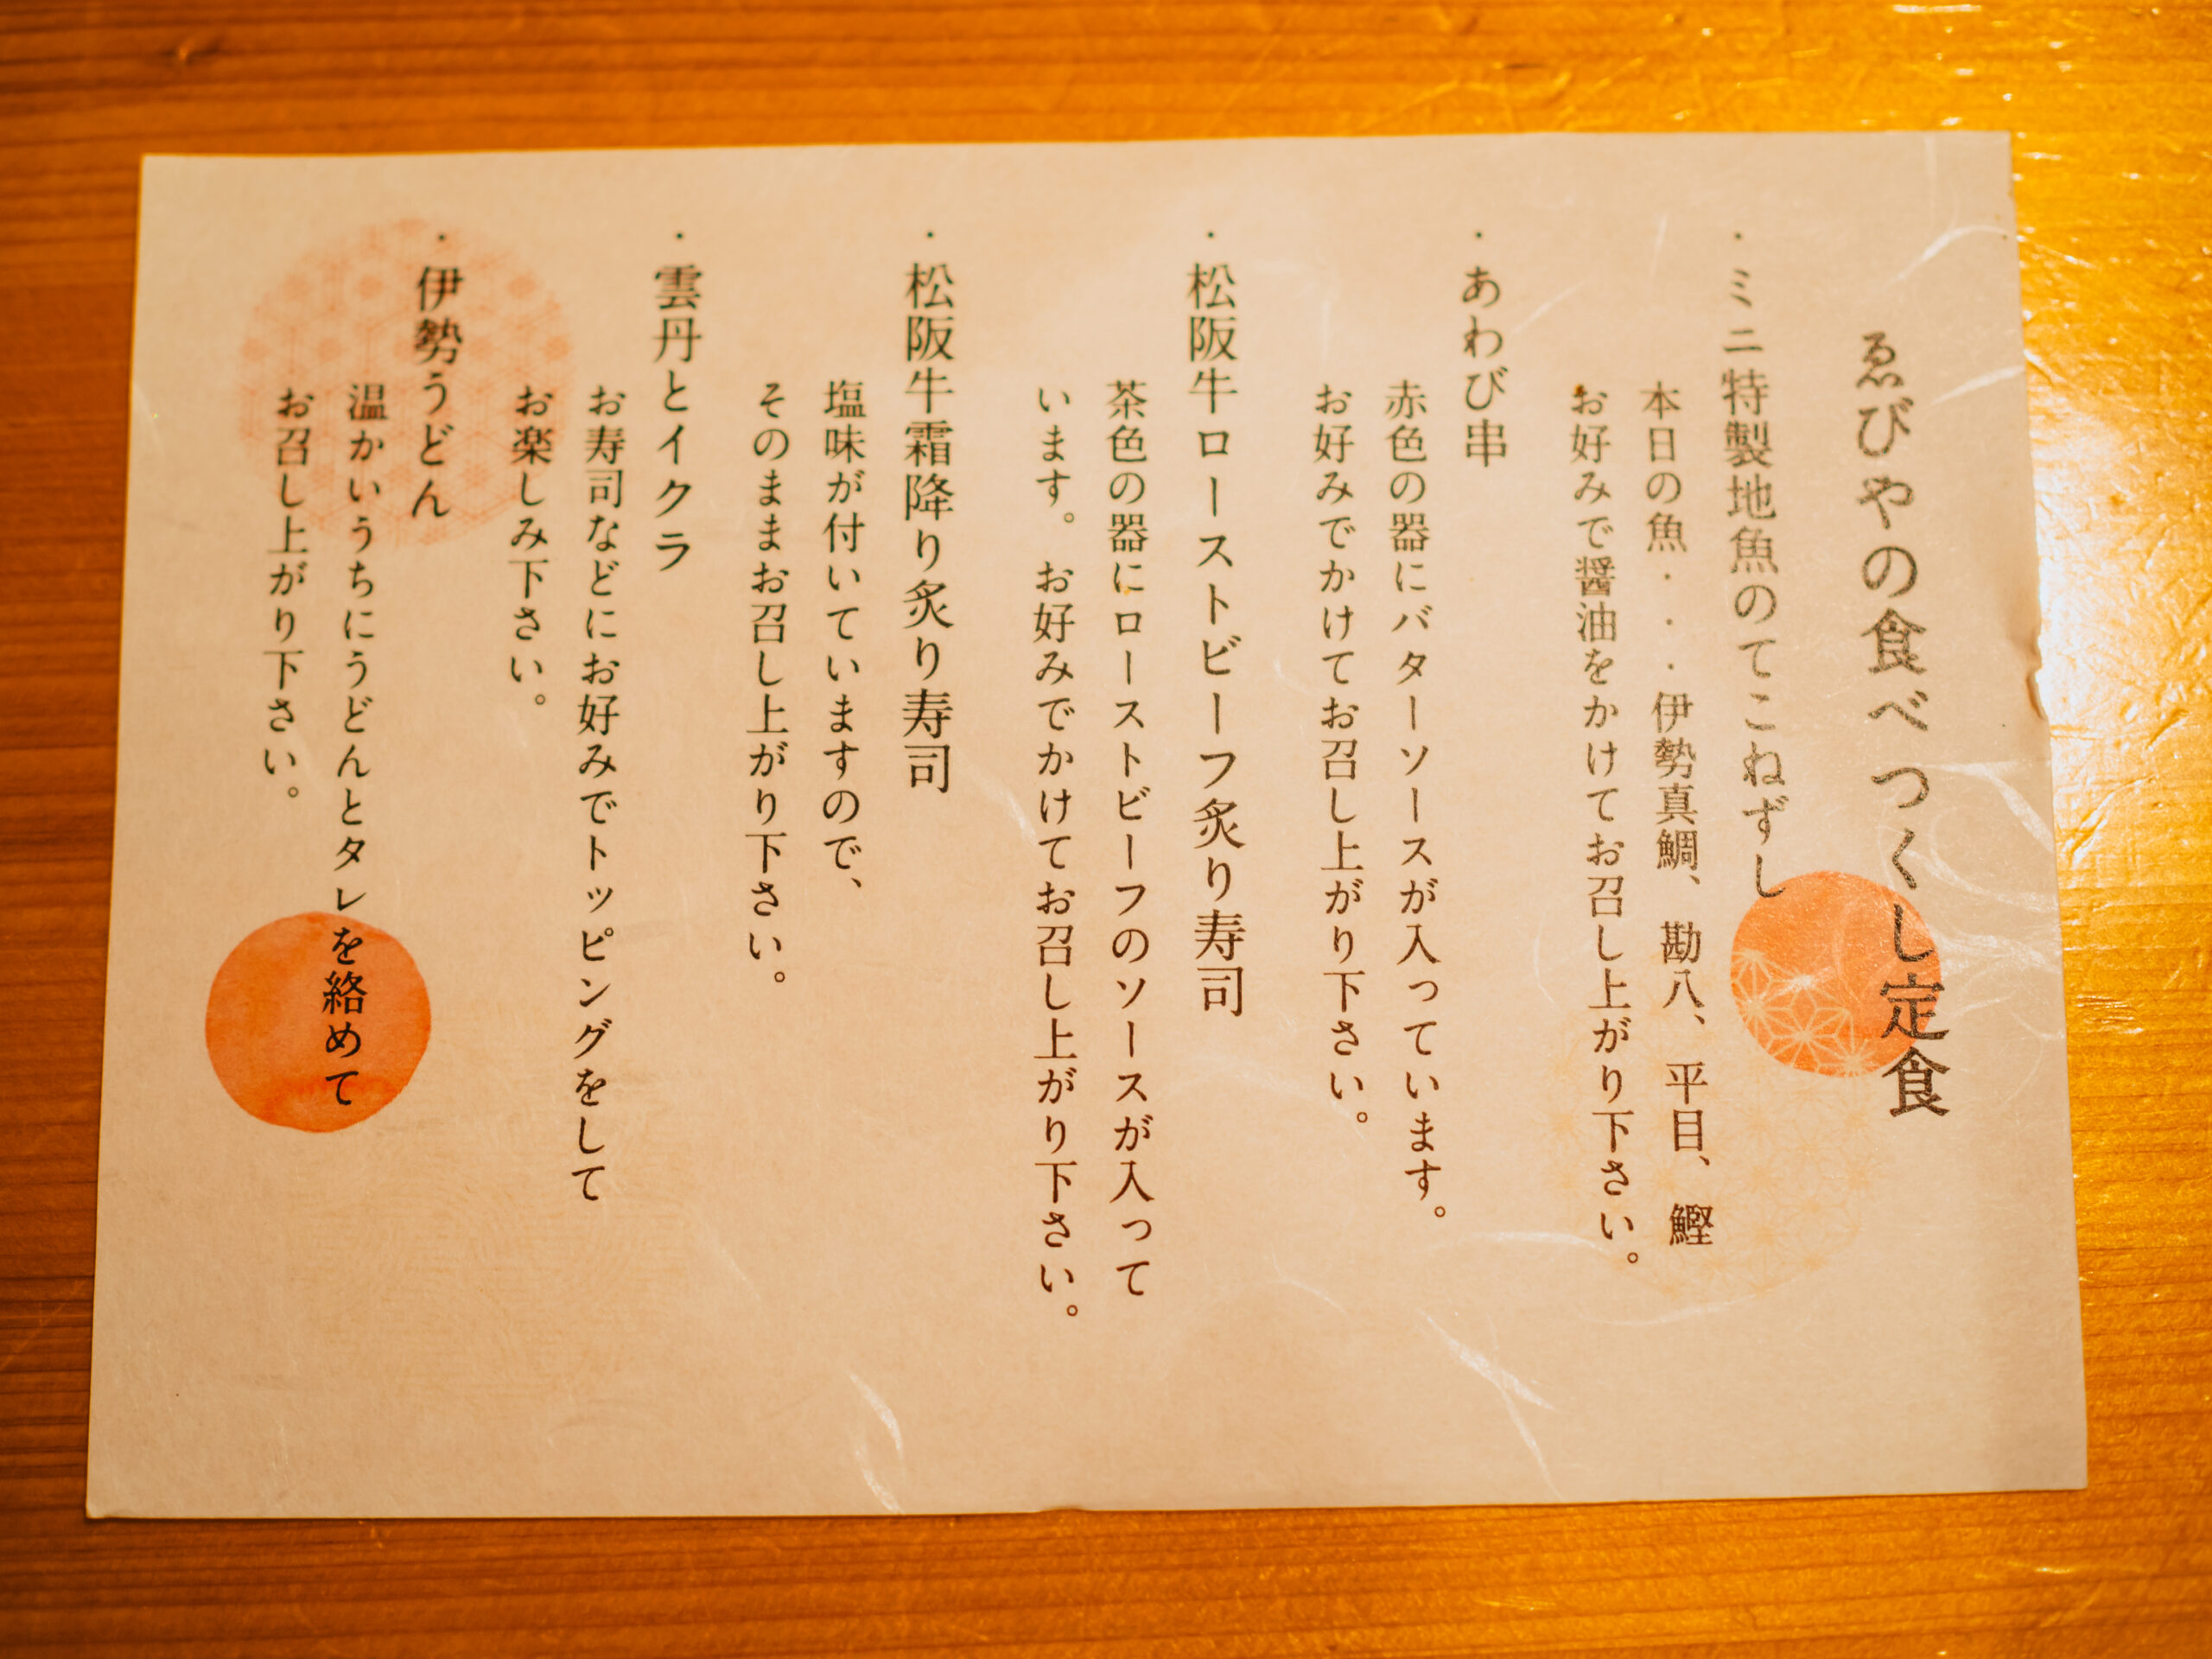 ゑびやの食べつくし定食
・ミニ特製地魚のてこねずし
本日の魚・・・伊勢真鯛、勘八、平目、鰹
お好みで醤油をかけてお召し上がり下さい。
・あわび串
赤色の器にバターソースが入っています。
お好みでかけてお召し上がり下さい。
・松阪牛ローストビーフ炙り寿司
茶色の器にローストビーフのソースが入って
います。お好みでかけてお召し上がり下さい。
・松阪牛霜降り炙り寿司
塩味が付いていますので、
そのままお召し上がり下さい。
・雲丹とイクラ
お寿司などにお好みでトッピングをして
お楽しみ下さい。
・伊勢うどん
温かいうちにうどんとタレを絡めて
お召し上がり下さい。